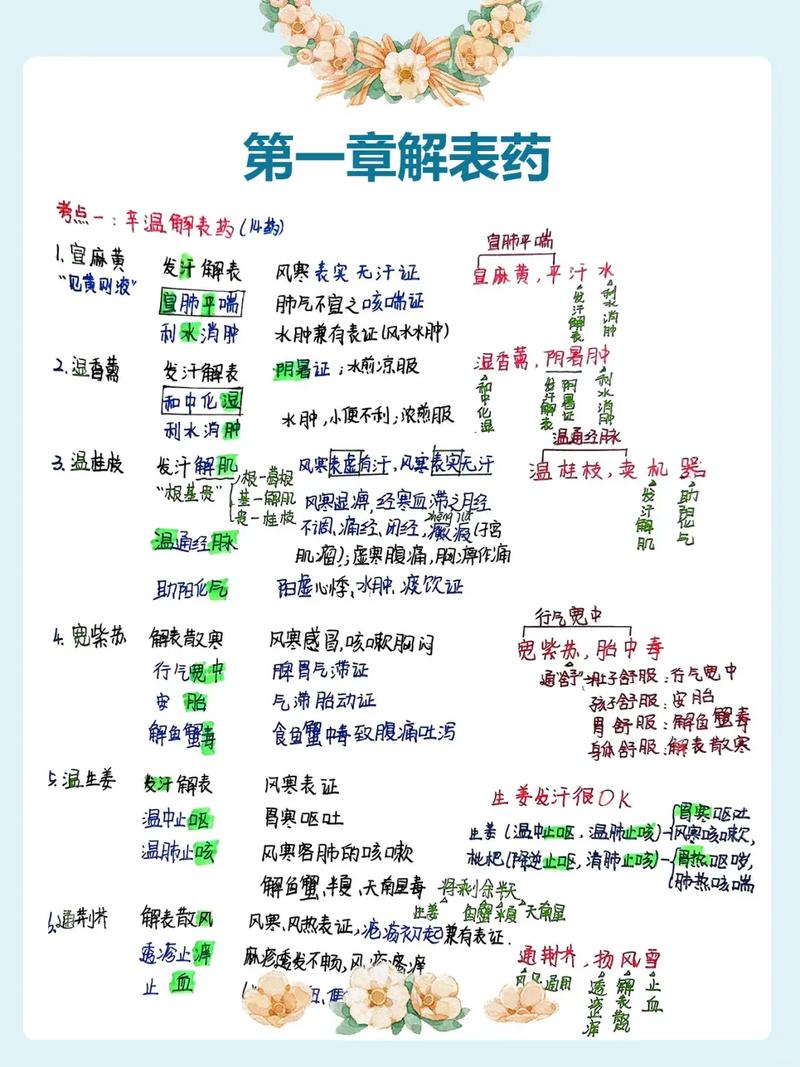 第一章解表药
考点一：辛温解表药(14药)
1.宣麻黄 发汗解表 风寒表实无汗证
"见黄则液" 宣肺平喘 肺气不宣之咳喘证
利水消肿 水肿兼有表证(风水水肿)
宣肺平喘
宣麻黄，平汗水
发汗解表 利水消肿
2.温香薷 发汗解表 阴暑证；水煎凉服
和中化湿
利水消肿 水肿，小便不利；浓煎服
温香薷，阴暑肿
和中化湿 发汗解表 阴暑证 利水消肿
3.温桂枝 发汗解肌 风寒表虚有汗，风寒表实无汗
"根基贵" 根一葛根
基一解肌
贵一桂枝
风寒湿痹，经寒血滞之月经
不调、痛经、闭经、癥瘕(子宫
肌瘤)；虚寒腹痛，胸痹作痛
温通经脉
助阳化气 阳虚心悸、水肿、痰饮证
温通经脉
温桂枝，卖机器
发汗解肌 助阳化气
4.宽紫苏 解表散寒 风寒感冒，咳嗽胸闷
行气宽中 脾胃气滞证
安胎 气滞胎动证
解鱼蟹毒 食鱼蟹中毒致腹痛吐泻
行气宽中
宽紫苏，胎中毒
通"舒" 肚子舒服：行气宽中
孩子舒服：安胎
胃舒服：解鱼蟹毒
身体舒服：解表散寒
5.温生姜 发汗解表 风寒表证
温中止呕 胃寒呕吐
温肺止咳 风寒客肺的咳嗽
解鱼蟹、半夏、天南星毒
将剩余半天
生姜 鱼蟹 半夏 天南星
生姜发汗很OK
生姜(温中止呕，温肺止咳)—胃寒呕吐
风寒咳嗽，
枇杷(降逆止呕，清肺止咳)—胃热呕哕，
肺热咳喘
6.通荆芥 解表散风 风寒、风热表证，疮疡初起兼有表证.
透疹止痒 麻疹透发不畅，风疹瘙痒
止血
通荆芥，扬风雪
透疹止痒 解表散风 止血